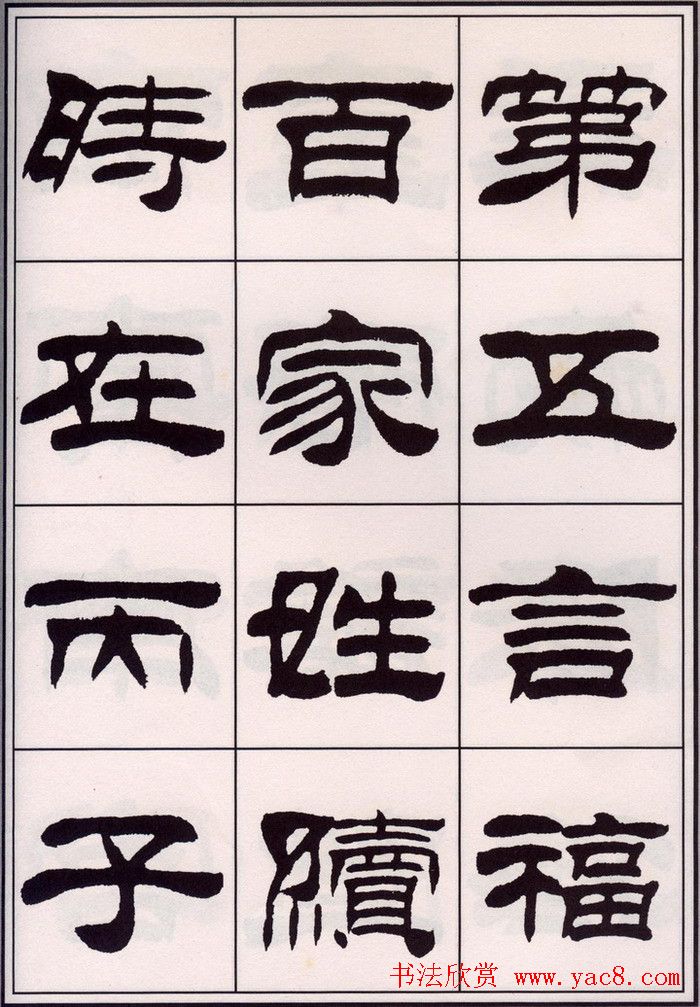 第五言福
百家姓續
時在丙子
书法欣赏 www.yac8.com